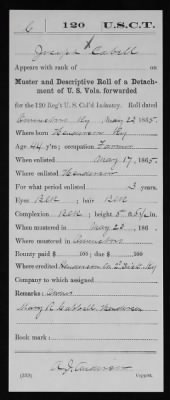 C 120 U.S.C.T.
Joseph Cabell
Appears with rank of
Muster and Descriptive Roll of a Detach-
ment of U. S. Vols. forwarded
for the 120 Reg't U. S. Col'd Infantry. Roll dated
Owensboro Ky, May 22, 1865.
Where born Henderson Ky
Age 44 y'rs; occupation Farmer
When enlisted May 17, 1865.
Where enlisted Henderson
For what period enlisted 3 years.
Eyes Blk; hair Blk
Complexion Blk; height 5 ft. in.
When mustered in May 22, 186
Where mustered in Owensboro
Bounty paid $ 100; due $ 100
Where credited Henderson Co 2 Dist Ky
Company to which assigned
Remarks: Owner
Mary R. Henderson
Book mark:
Copyist.